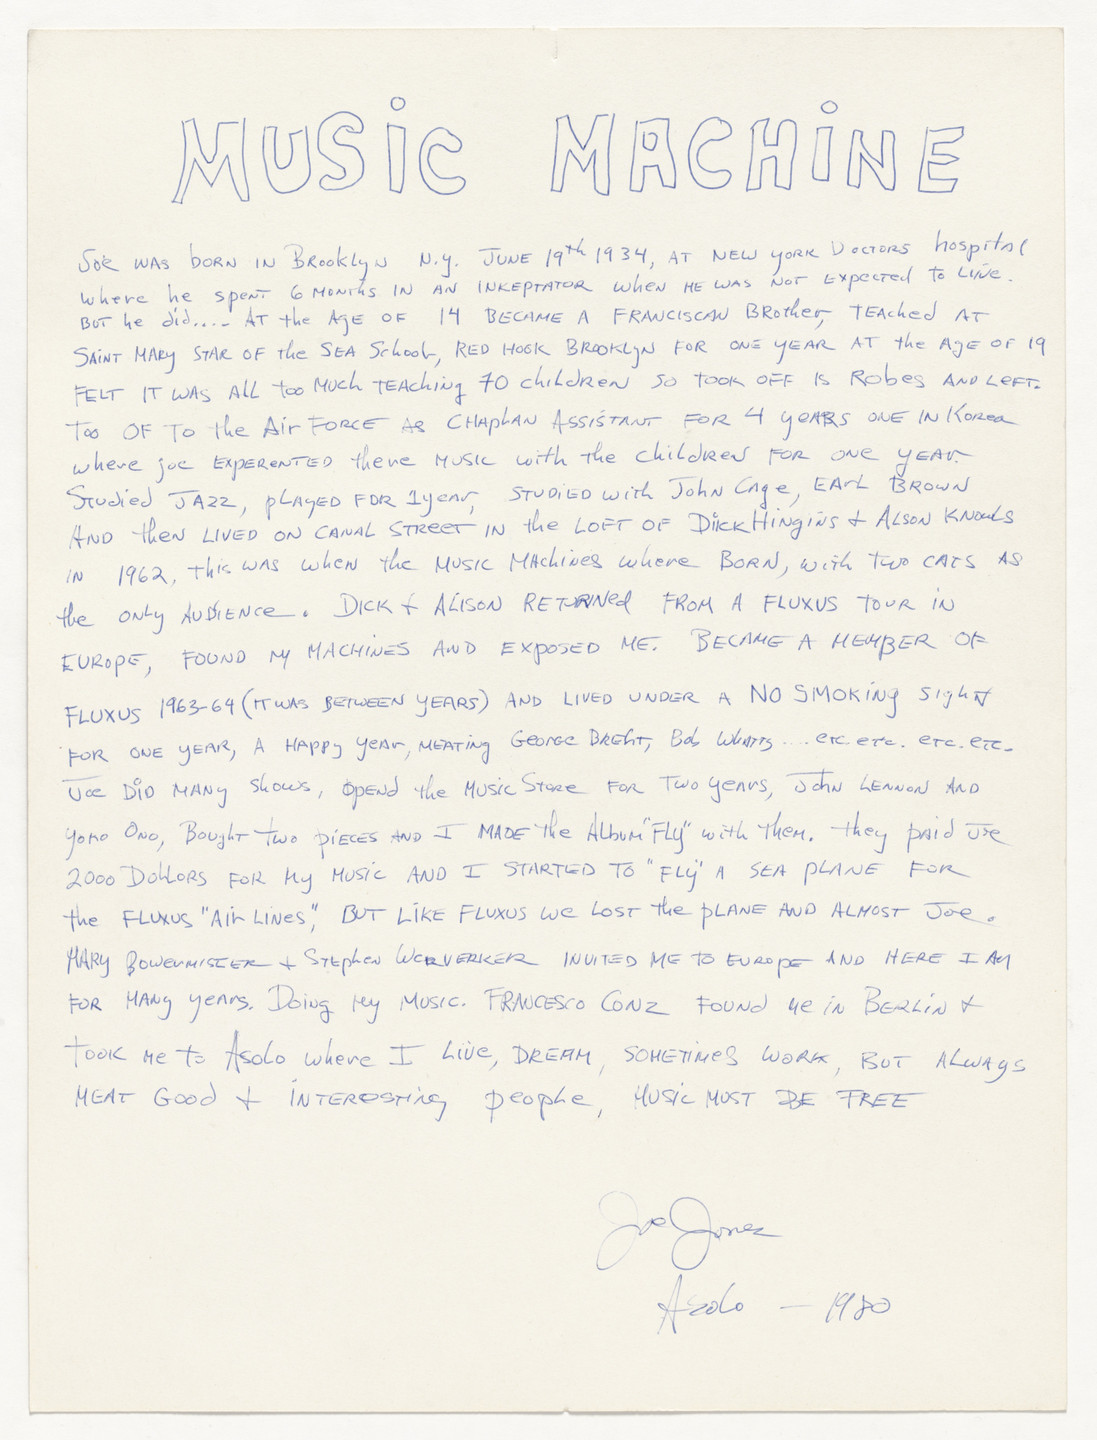 MUSiC MACHiNE
Joe WAS bORN IN BROOKlyN N.y. JUNE 19th 1934, AT NEW yORK DOCTORS hospital
where he spent 6 MONTHS IN AN INKEPTATOR when HE WAS NOT EXPECTED to LIVE.
BUT he did.... AT the AGE OF 14 BECAME A FRANCISCAN BROther, TEAChed AT
SAINT MARy STAR OF the SEA School, RED HOOK BROOKlyN FOR ONE YEAR AT the AGE OF 19
FELT IT WAS ALL too Much TEAChing 70 children SO TOOK OFF IS RobES AND LEFT.
Too OF TO the AiR FORCE AS CHAplAN ASSISTANT FOR 4 yEARS ONE IN KOREA
where joe EXPERENTED there MUSIC with the children FOR ONE YEAR.
Studied JAZZ, plAyED FOR 1 year, STUDIED with John Cage, EARL BROWN
AND then LIVED ON CANAL STREET IN the LOFT OF DiCK HINGiNS + ALSON KNOWLS
IN 1962, this WAS when the MUSIC MAChiNES where BORN, with TWO CATS AS
the ONLy AUDIENCE. DICK + ALISON RETURNed FROM A FLUXUS TOUR IN
EUROPE, FOUND My MACHINES AND EXPOSED ME. BECAME A MEMBER OF
FLUXUS 1963-64 (IT WAS BETWEEN YEARS) AND LIVED UNDER A NO SMOKING SigHt
FOR ONE YEAR, A HAppy YEAR, MEATING GEORGE BREHT, Bob WhATTS .... etc. etc. etc. etc.
Joe DiD MANY Shows, OPEND the MUSIC STORE FOR TWO yEARS, John LENNON AND
yoKO ONO, BOUGHT TWO piECES AND I MADE the Album "FLy" with THEM. they paid Joe
2000 DOLLORS FOR My MUSIC AND I STARTED TO "FLy" A SEA plANE FOR
the FLUXUS "AiR LiNES", BUT LIKE FLUXUS WE LOST the plANE AND ALMOST Joe.
MARy BOWERMISTER + STEphEN WERVERKER INVITED ME TO EUROPE AND HERE I AM
FOR MANY yEARS. DOiNG My MUSIC. FRANCESCO CONZ FOUND ME IN BERLIN +
TOOK ME to ASOLO where I LIVE, DREAM, SOMETIMES WORK, BUT ALWAyS
MEAT Good + INTERESTING people, MUSIC MUST BE FREE
Joe Jones
Asolo — 1980